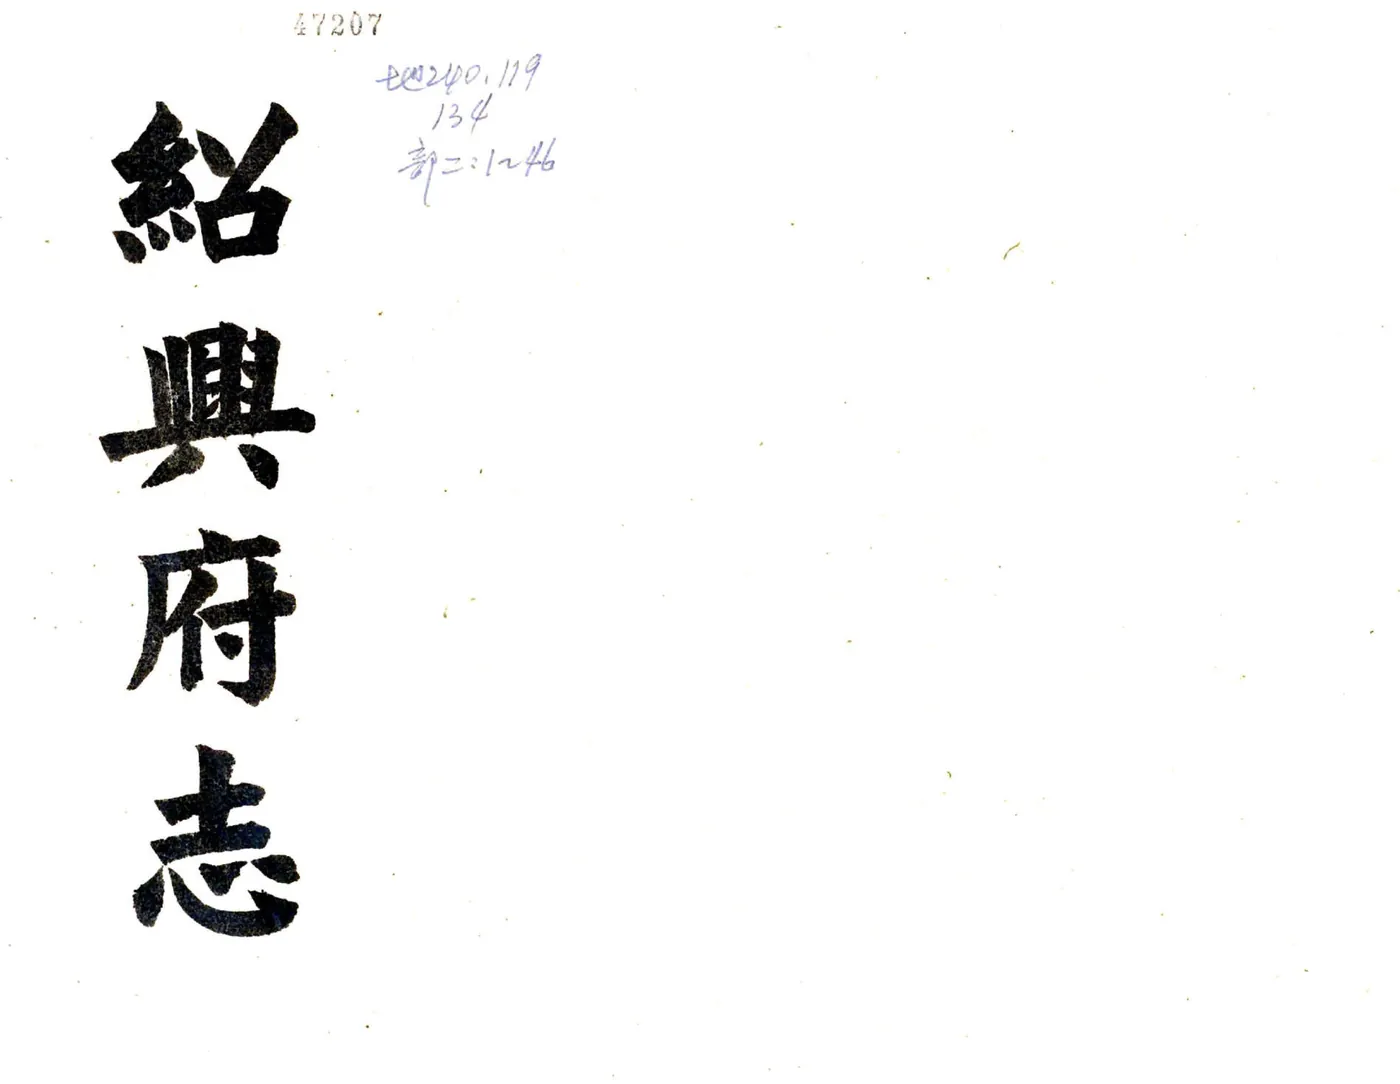 47207
地240.119
134
部二:1~46
紹興府志